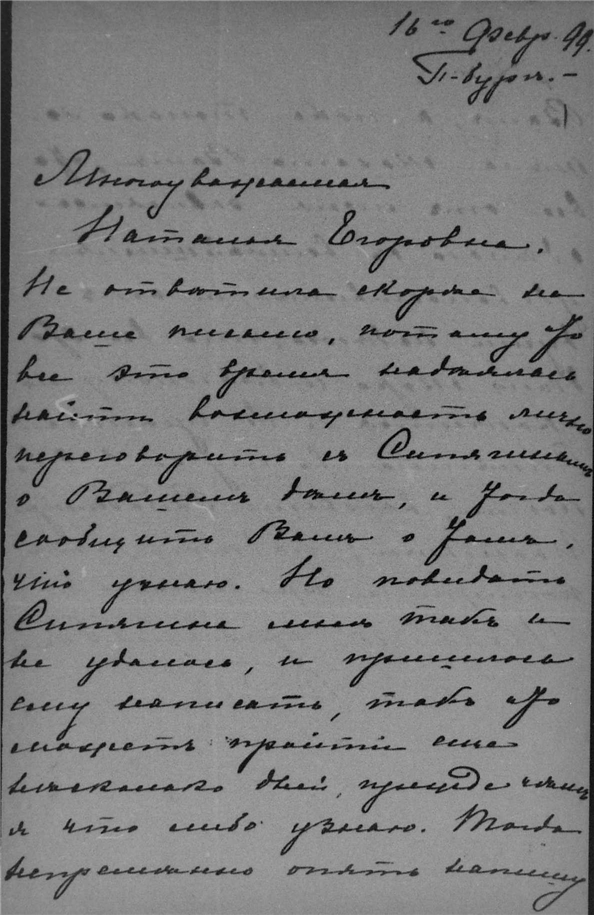 16го Февр. 99.
П-бургъ.-
Многоуважаемая
Наталья Егоровна.
Не отвѣтила скорѣе на
Ваше письмо, потому что
все это время надѣялась
найти возможность лично
переговорить съ Сипягинымъ
о Вашемъ дѣлѣ, и тогда
сообщить Вамъ о томъ,
что узнаю. Но повидать
Сипягина мнѣ такъ и
не удалось, и пришлось
ему написать, такъ что
можетъ пройти еще
нѣсколько дней, прежде чѣмъ
я что либо узнаю. Тогда
непремѣнно опять напишу